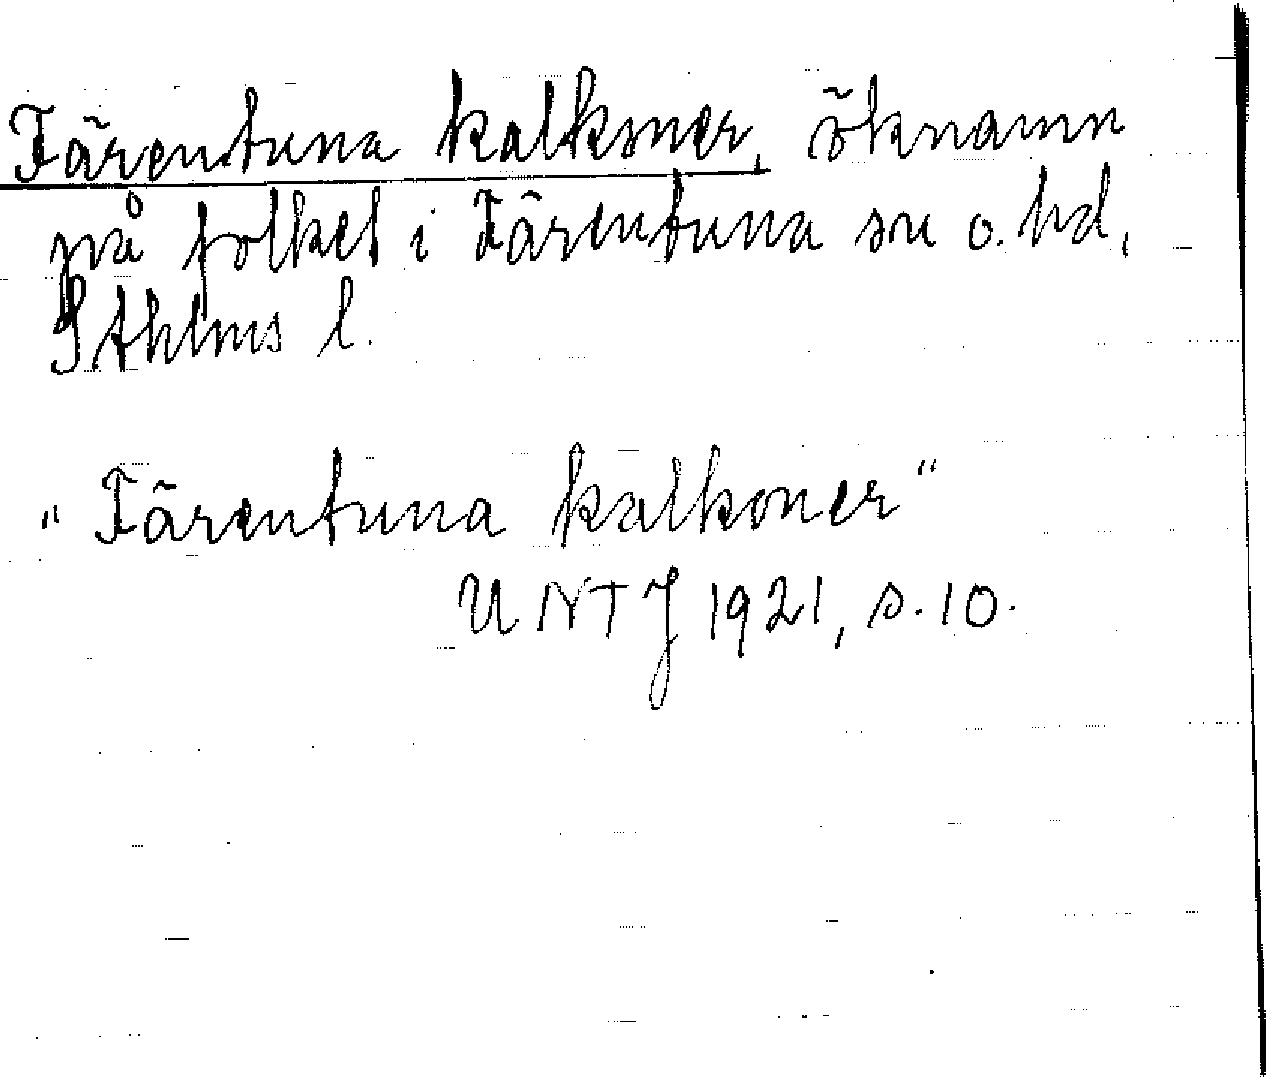 Färentuna kalkoner, öknamn
på folket i Färentuna sn o. hd,
Sthlms l.
"Färentuna kalkoner"
UNTJ 1921, s. 10.